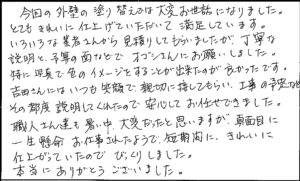 今回の外壁の塗り替えでは大変お世話になりました。
とてもきれいに仕上げていただいて満足しています。
いろいろな業者さんから見積りしてもらいましたが、丁寧な
説明と、予算の面などでオゴシさんにお願いしました。
特に現実で色のイメージをすることが出来たのが良かったです。
吉田さんにはいつも笑顔で、親切に接してもらい、工事の予定など
その都度説明してくれたので安心してお任せできました。
職人さん達も暑い中、大変だったと思いますが、真面目に
一生懸命お仕事されたようで、短期間に、きれいに
仕上がっていたのでびっくりしました。
本当にありがとうございました。